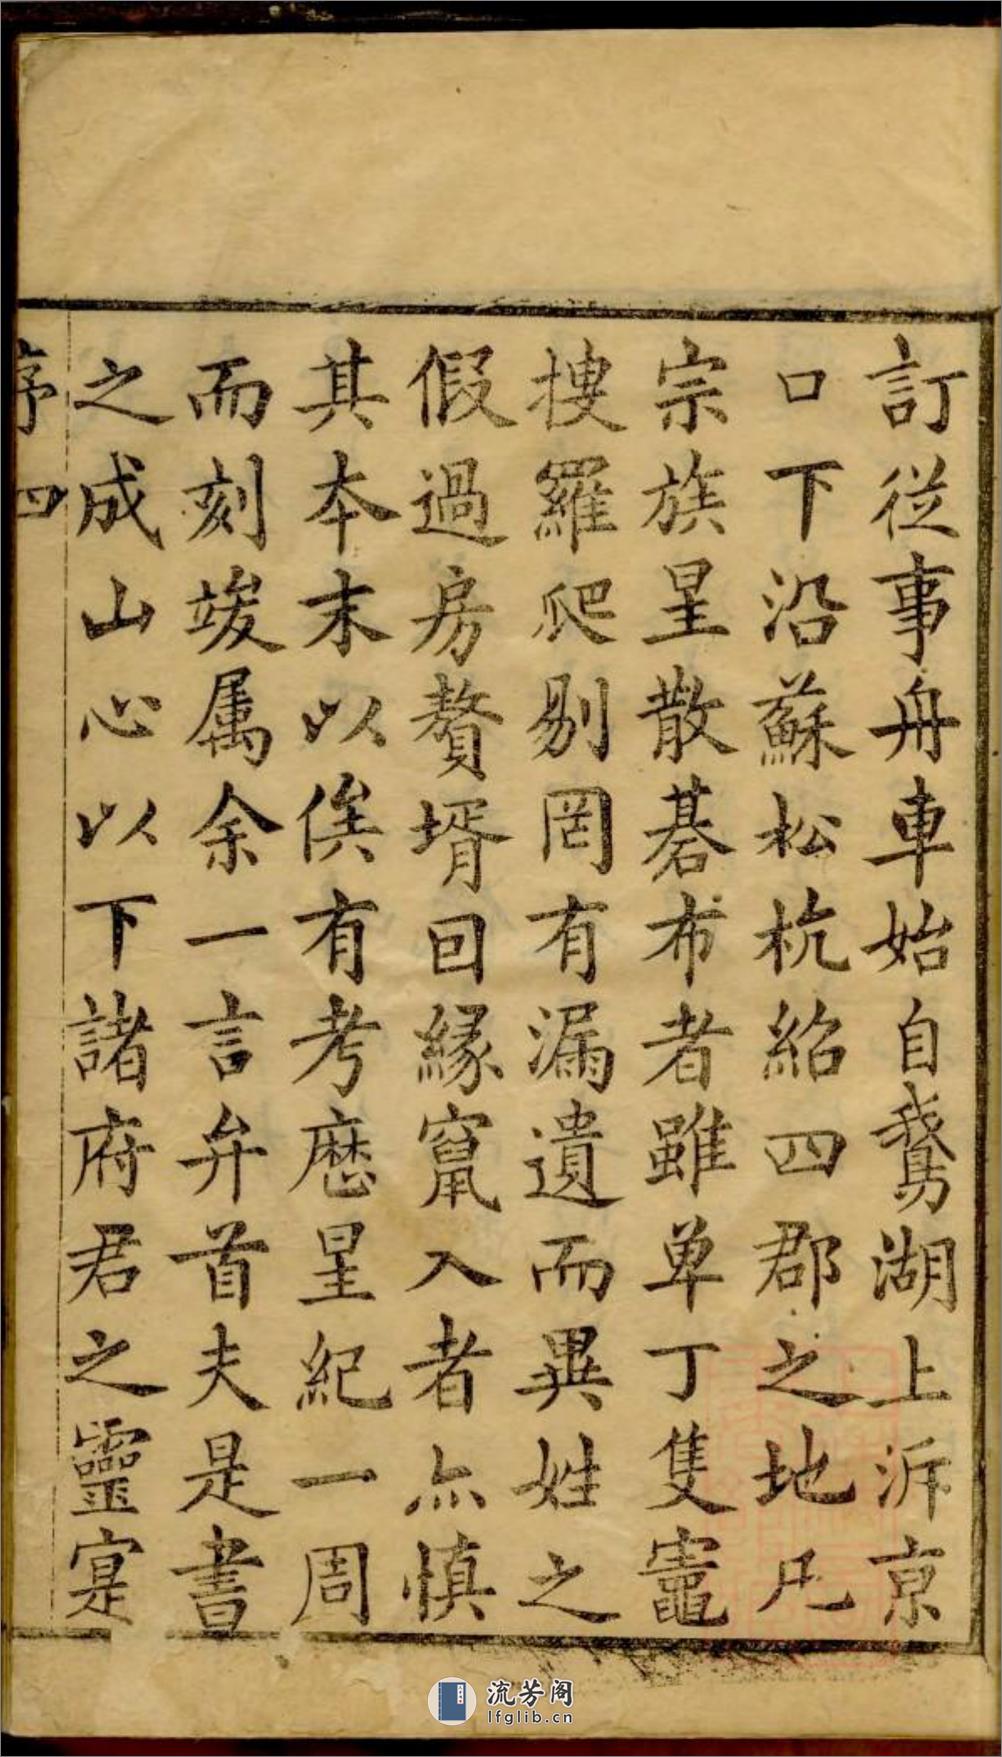 訂從事舟車始自鵞湖上泝京
口下沿蘇松杭紹四郡之地凡
宗族星散碁布者雖单丁隻竈
搜羅爬剔罔有漏遺而異姓之
假過房贅壻因緣竄入者亦慎
其本末以俟有考歷星紀一周
而刻竣属余一言弁首夫是書
之成山心以下諸府君之靈寔
序 四
流芳阁
lfglib.cn